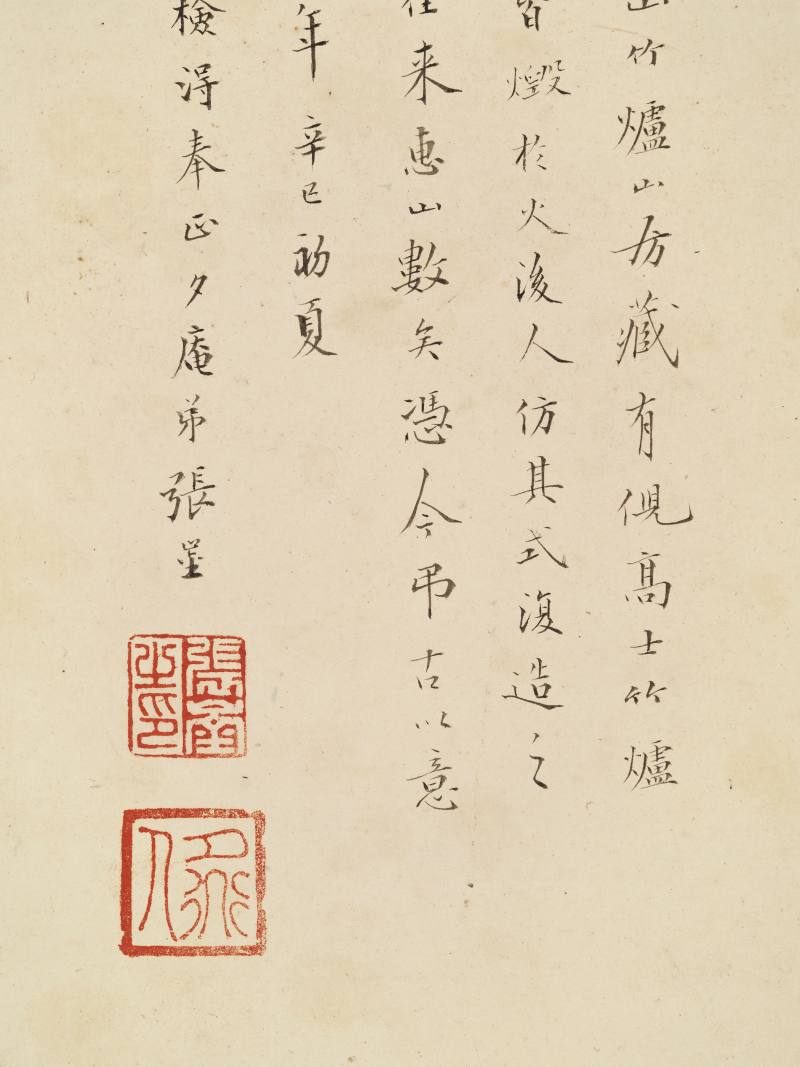 竹爐山房藏有倪高士竹爐
皆燬於火後人仿其式復造之
来惠山數矣憑今弔古以意
年辛巳初夏
檢得奉正夕庵弟張崟
張崟之印